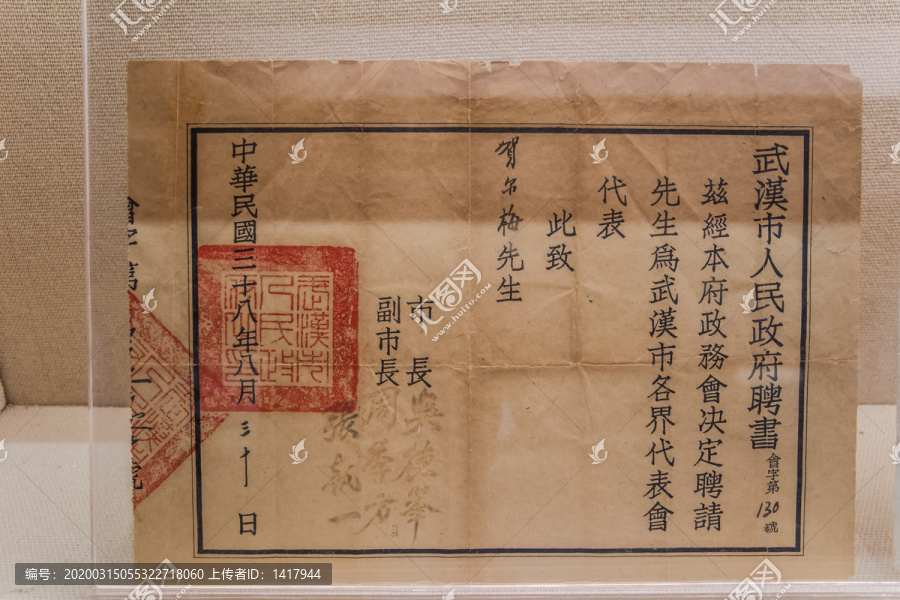 武漢市人民政府聘書
會字第130號
茲經本府政務會決定聘請
先生爲武漢市各界代表會
代表
此致
賀尔梅先生
市長 吳德峯
副市長 周季方
張執一
中華民國三十八年八月三十日
會字第
武漢市人民政府印
汇图网
www.huitu.com
编号：20200315055322718060 上传者ID：1417944